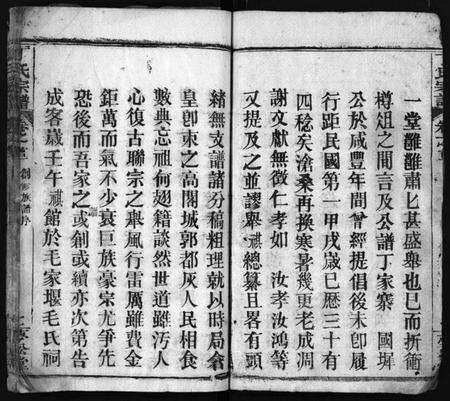 一堂雝雝肅匕甚盛舉也巳而折衝
樽俎之間言及公譜丁家寨 國墀
公於咸豐年間曾經提倡後未卽履
行距民國第一甲戌歲已歷三十有
四稔矣滄桑再換寒暑幾更老成凋
謝文獻無徵仁孝如 汝孝汝鴻等
又提及之並謬舉禎總纂且畧有頭
緒無支譜諸分稿粗理就以時局倉
皇卽束之高閣城郭都灰人民相食
數典忘祖何翅籍談然世道雖汚人
心復古聯宗之舉風行雷厲雖費金
鉅萬而氣不少衰巨族豪宗尤爭先
恐後而吾家之譜或創或續亦次第告
成客歲壬午禎館於毛家堰毛氏祠
氏宗譜
卷之首
創修族譜序